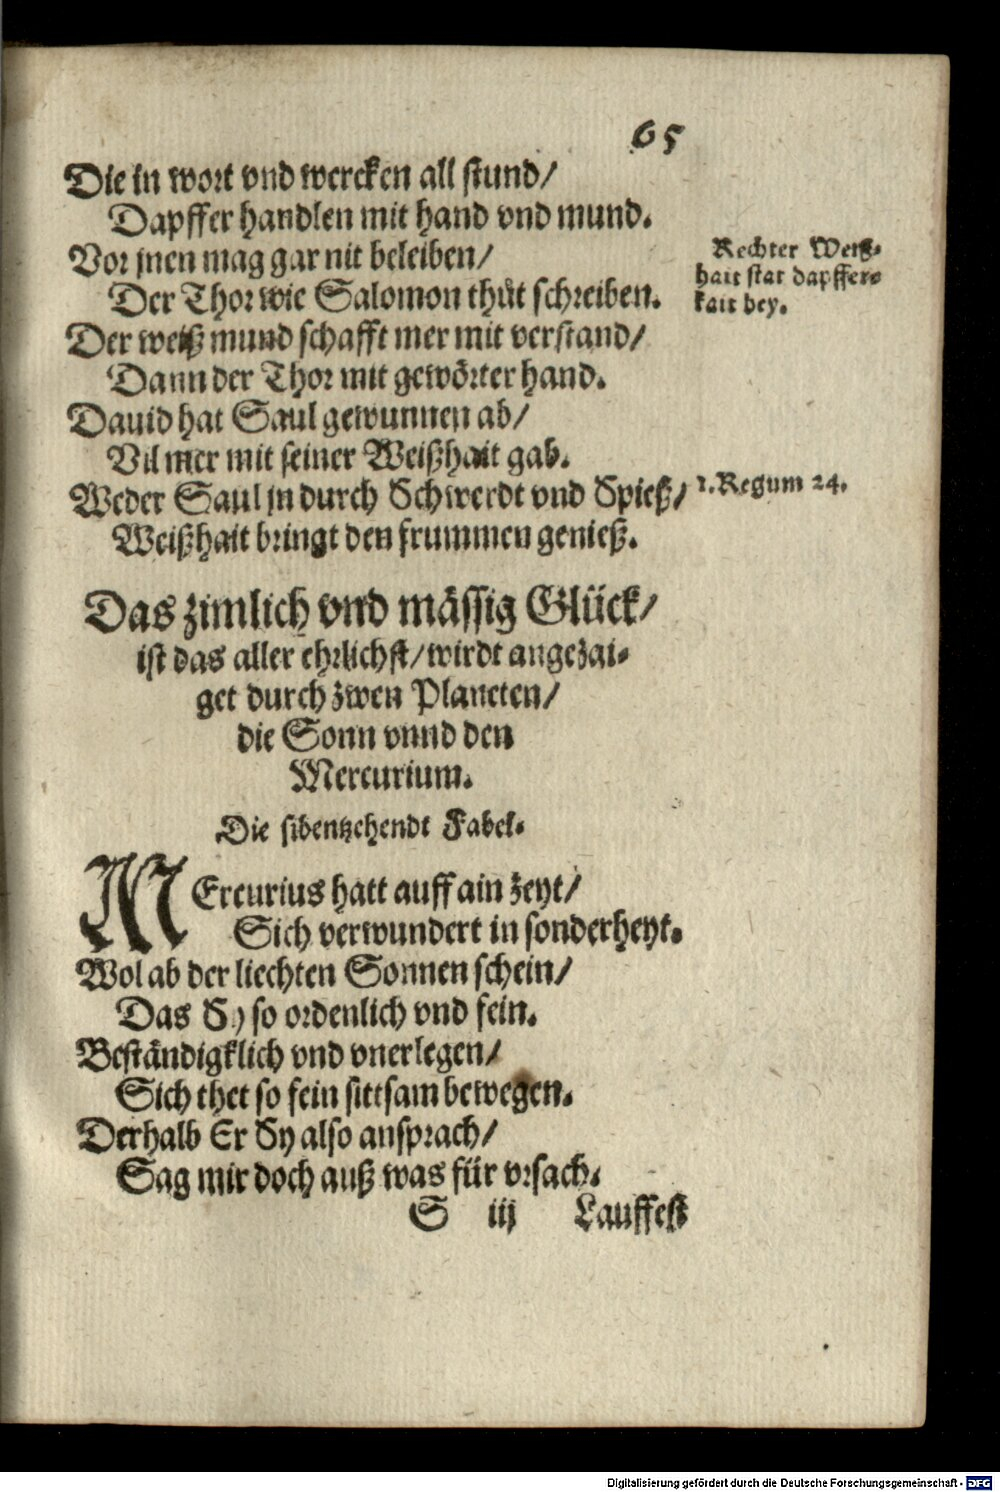 65
Die in wort vnd wercken all stund/
Dapffer handlen mit hand vnd mund.
Vor jnen mag gar nit beleiben/
Der Thor wie Salomon thůt schreiben.
Rechter Weiß-
hait stat dapffer-
kait bey.
Der weiß mund schafft mer mit verstand/
Dann der Thor mit gewörter hand.
Dauid hat Saul gewunnen ab/
Vil mer mit seiner Weißhait gab.
Weder Saul jn durch Schwerdt vnd Spieß/
1. Regum 24.
Weißhait bringt den frummen genieß.
Das zimlich vnd mässig Glück/
ist das aller ehrlichst/ wirdt angezai-
get durch zwen Planeten/
die Sonn vnnd den
Mercurium.
Die sibentzehendt Fabel.
MErcurius hatt auff ain zeyt/
Sich verwundert in sonderheyt.
Wol ab der liechten Sonnen schein/
Das Sy so ordenlich vnd fein.
Beständigklich vnd vnerlegen/
Sich thet so fein sittsam bewegen.
Derhalb Er Sy also ansprach/
Sag mir doch auß was für vrsach.
S iij Lauffest
Digitalisierung gefördert durch die Deutsche Forschungsgemeinschaft - DFG